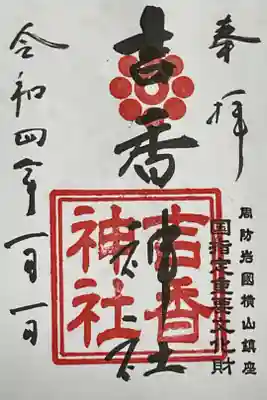 奉拝
周防岩國横山鎮座
国指定重要文化財
吉香神社
吉香神社
令和四年一月一日